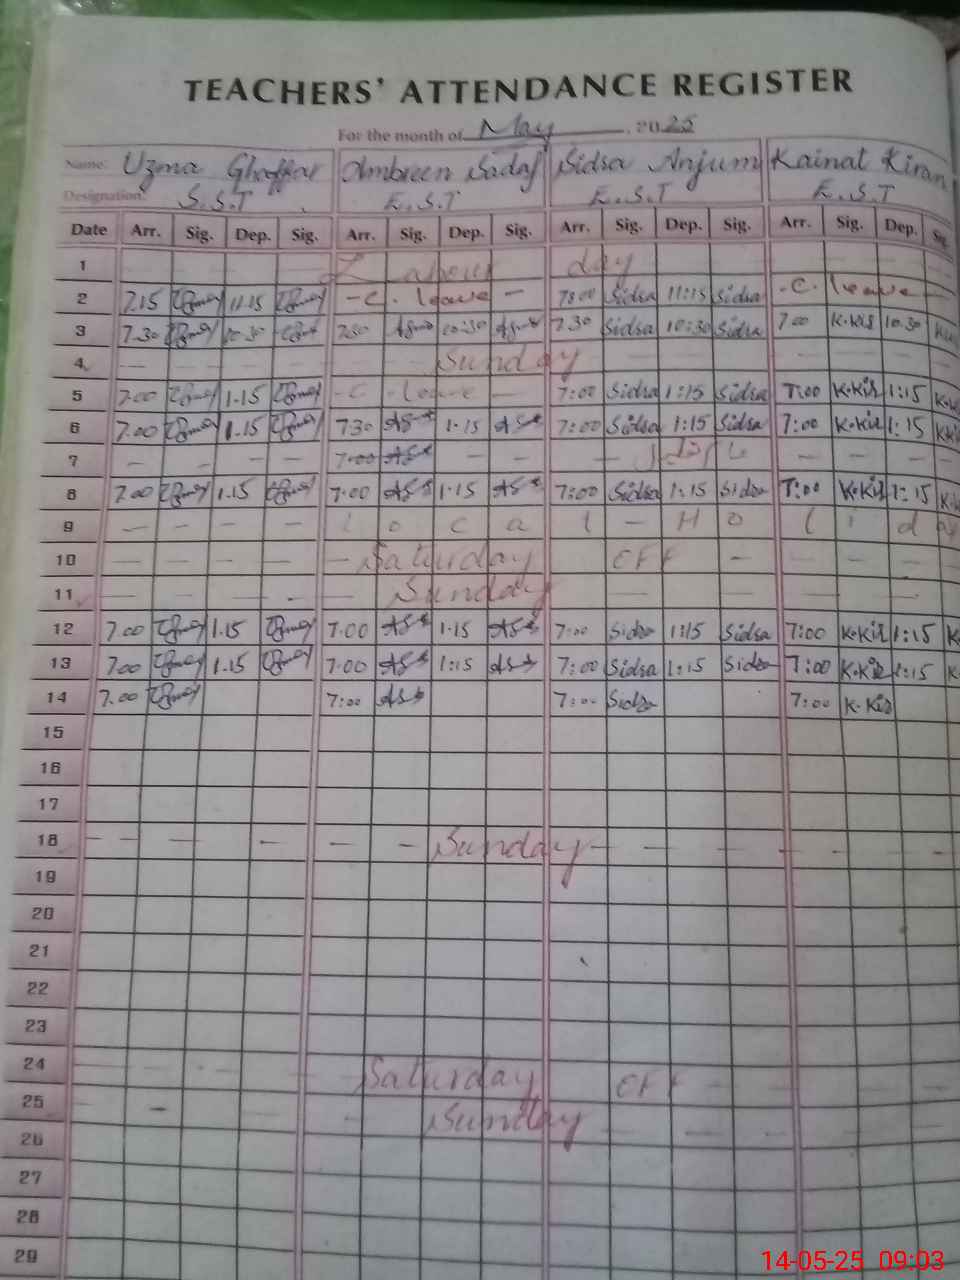 TEACHERS' ATTENDANCE REGISTER
For the month of May, 2025
Name: Uzma Ghaffar Ambreen Sadaf Sidsa Anjum Kainat Kiran
Designation: S.S.T E.S.T E.S.T E.S.T
Date Arr. Sig. Dep. Sig. Arr. Sig. Dep. Sig. Arr. Sig. Dep. Sig. Arr. Sig. Dep. Sig.
1 Labour day
2 7.15 11.15 - C. leave - 7:00 Sidsa 11:15 Sidsa - C. leave -
3 7.30 10.30 7.30 10:30 7.30 Sidsa 10:30 Sidsa 7.00 K.Kis 10.30
4 Sunday
5 7.00 1.15 - C. leave - 7:00 Sidsa 1:15 Sidsa 7:00 K.Kis 1:15
6 7.00 1.15 7.30 1.15 7:00 Sidsa 1:15 Sidsa 7:00 K.Kis 1:15
7 — — — — 7.00 — — — — — — —
8 7.00 1.15 7.00 1.15 7:00 Sidsa 1:15 Sidsa 7:00 K.Kis 1:15
9 — — — — local - Holiday
10 — — — — Saturday Off —
11 — — — Sunday
12 7.00 1.15 7.00 1.15 7:00 Sidsa 1:15 Sidsa 7:00 K.Kis 1:15
13 7.00 1.15 7.00 1:15 7:00 Sidsa 1:15 Sidsa 7:00 K.Kis 1:15
14 7.00 7:00 7:00 Sidsa 7:00 K.Kis
15
16
17
18 — — — — — — Sunday — — — — — —
19
20
21
22
23
24 Saturday Off
25 Sunday
26
27
28
29
14-05-25 09:03